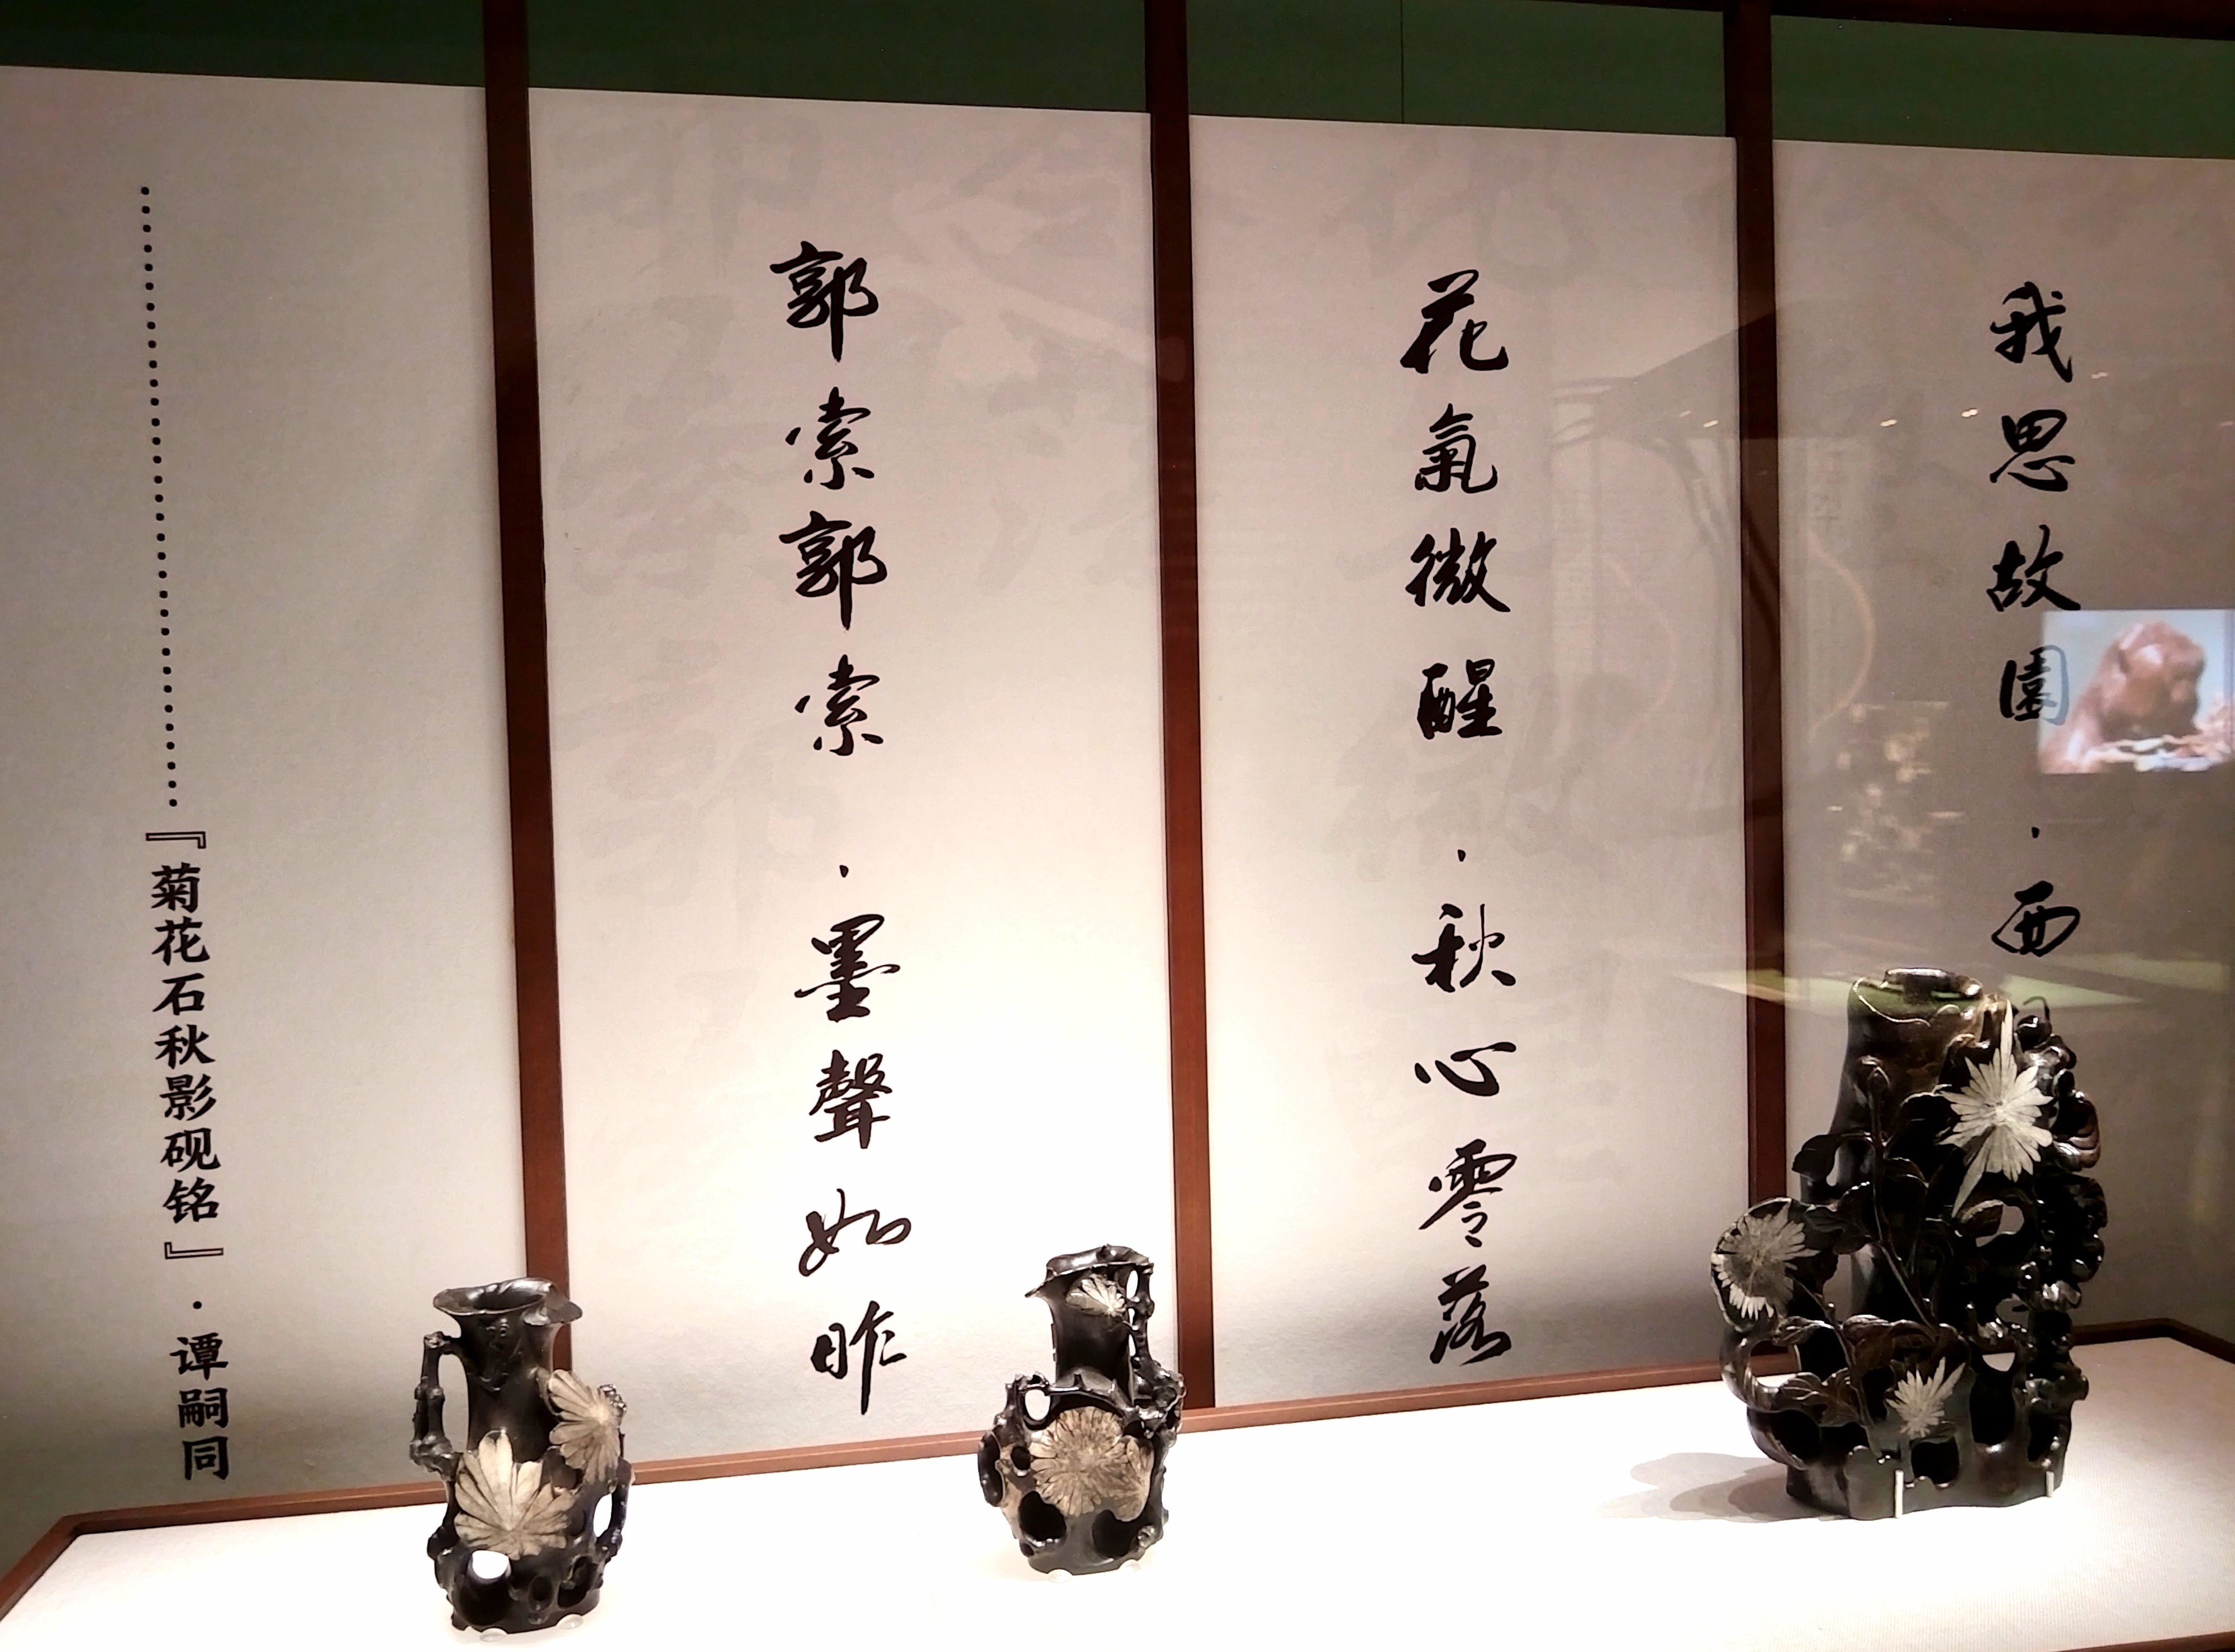 我思故園·西
花氣微醒·秋心零落
郭索郭索·墨聲如昨
……『菊花石秋影砚铭』·谭嗣同